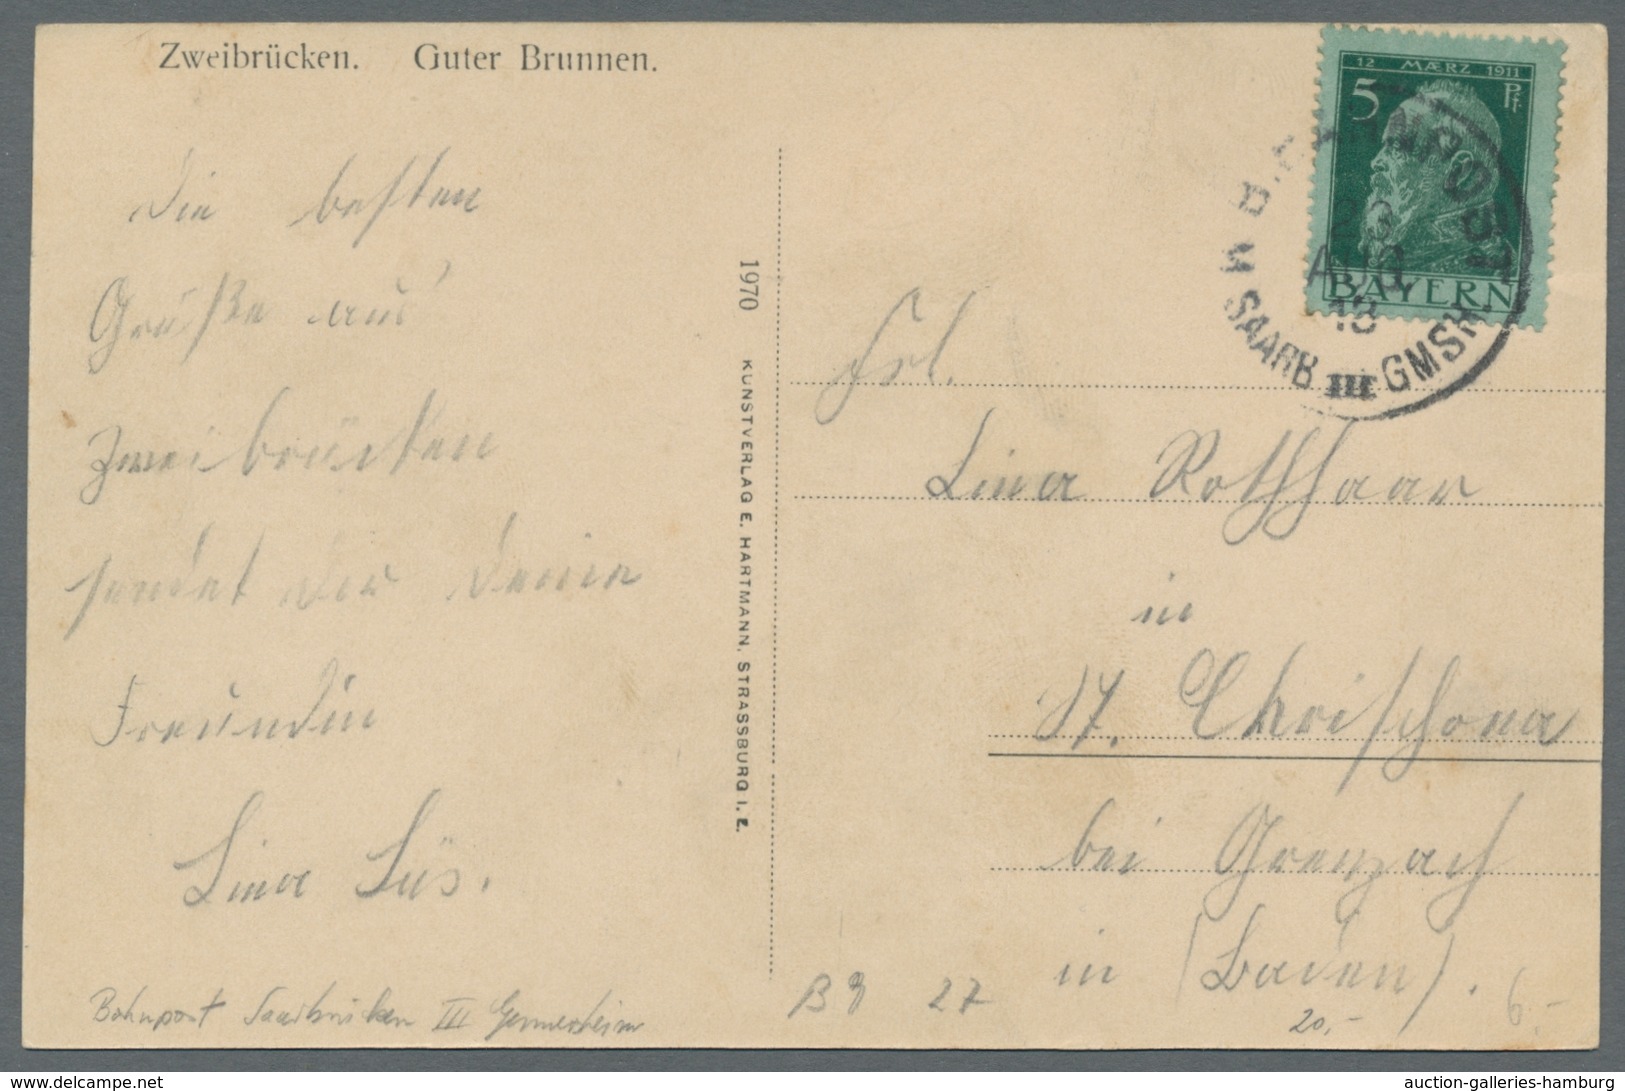 Zweibrücken. Guter Brunnen.
Die besten
Grüße aus
Zweibrücken
sendet Dir Deine
Freundin
Lina Süs.
Bahnpost Saarbrücken III Germersheim
1970 KUNSTVERLAG E. HARTMANN, STRASSBURG I. E.
12 MÆRZ 1911
5 Pf.
BAYERN
B. BAHNPOST
23
AUG
13
M SAARB III GMSH.
Frl.
Lina Rothhaar
in
St. Chrischona
bei Grenzach
in (Baden).
27
20,-
6,-
auction-galleries-hamburg
www.delcampe.net